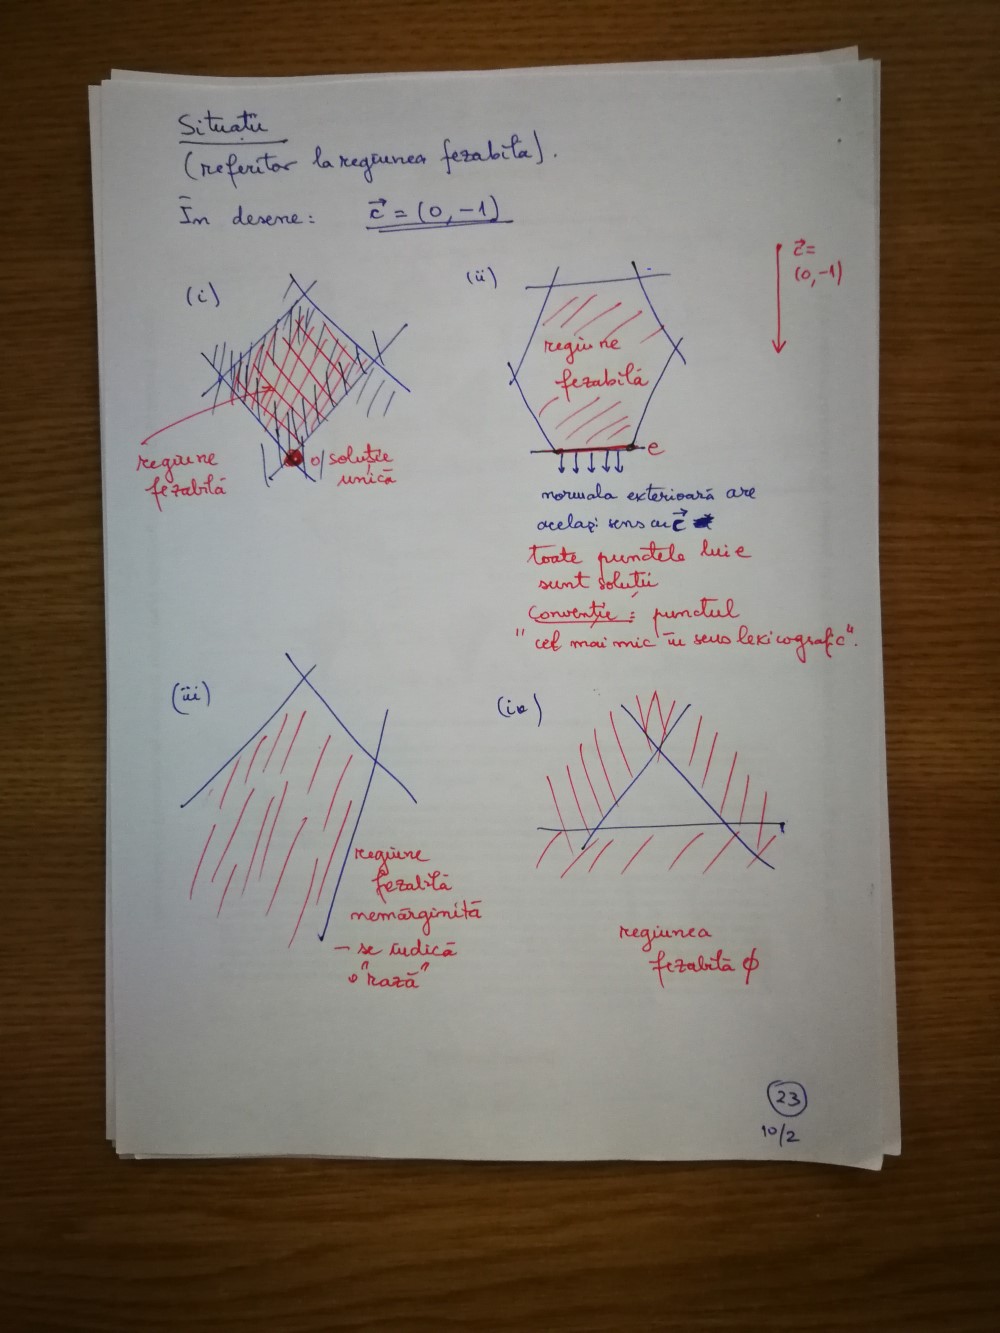 Situații
(referitor la regiunea fezabilă).
În desene: c⃗ = (0, -1)
c⃗ =
(0, -1)
(i)
regiune
fezabilă
o soluție
unică
(ii)
regiune
fezabilă
e
normala exterioară are
același sens cu c⃗
toate punctele lui e
sunt soluții
Convenție: punctul
"cel mai mic în sens lexicografic".
(iii)
regiune
fezabilă
nemărginită
- se indică
o "rază"
(iv)
regiunea
fezabilă ϕ
23
10/2